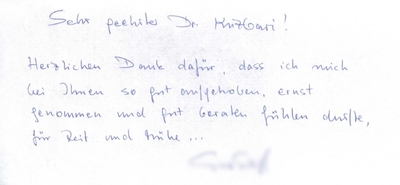 Sehr geehrter Dr. Kuzbari!
Herzlichen Dank dafür, dass ich mich
bei Ihnen so gut aufgehoben, ernst
genommen und gut beraten fühlen durfte,
für Zeit und Mühe...